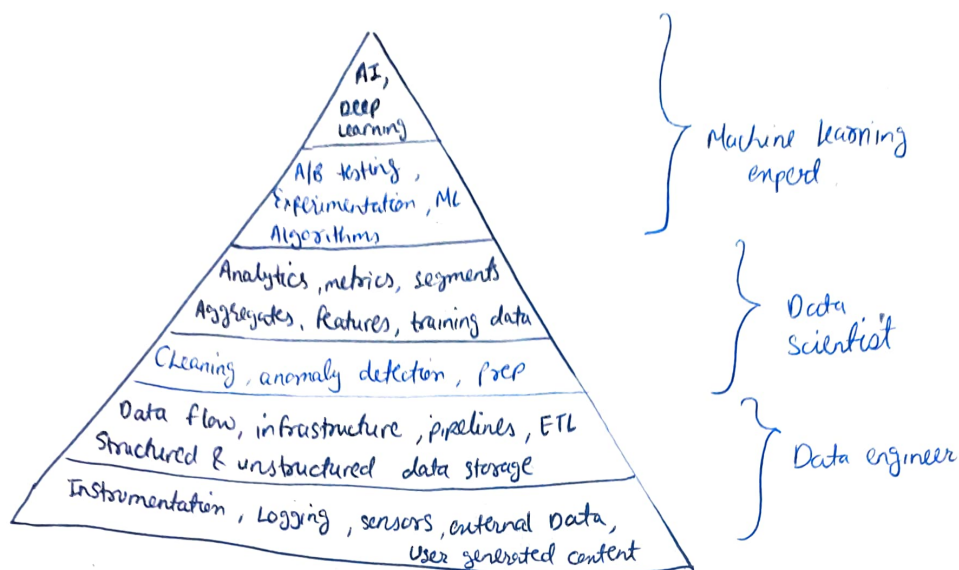 AI,
Deep
Learning
A/B testing,
Experimentation, ML
Algorithms
Analytics, metrics, segments
Aggregates, features, training data
Cleaning, anomaly detection, prep
Data flow, infrastructure, pipelines, ETL
Structured & unstructured data storage
Instrumentation, Logging, sensors, external Data,
User generated content
Machine learning
expert
Data
scientist
Data engineer